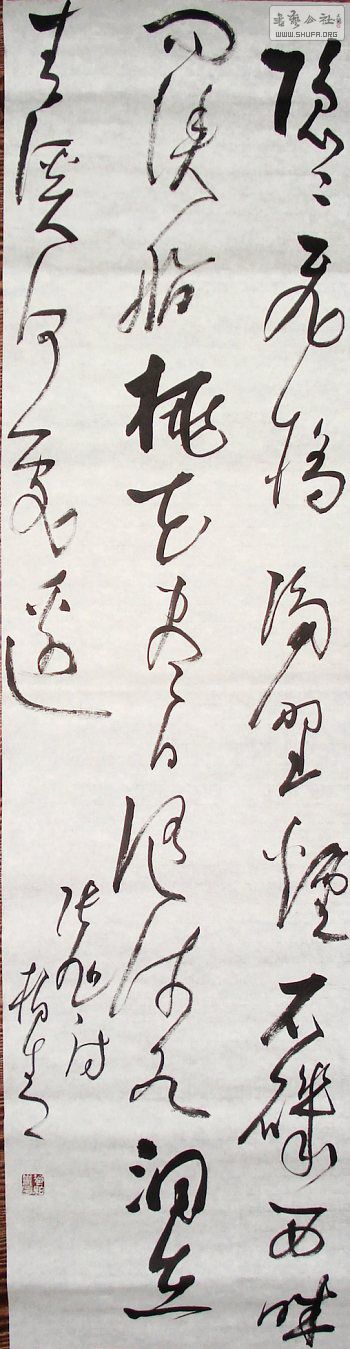 隱々飛橋隔野煙石磯西畔
問漁船桃花盡日隨流水洞在
青溪何處邊
張旭詩
書藝公社
WWW.SHUFA.ORG